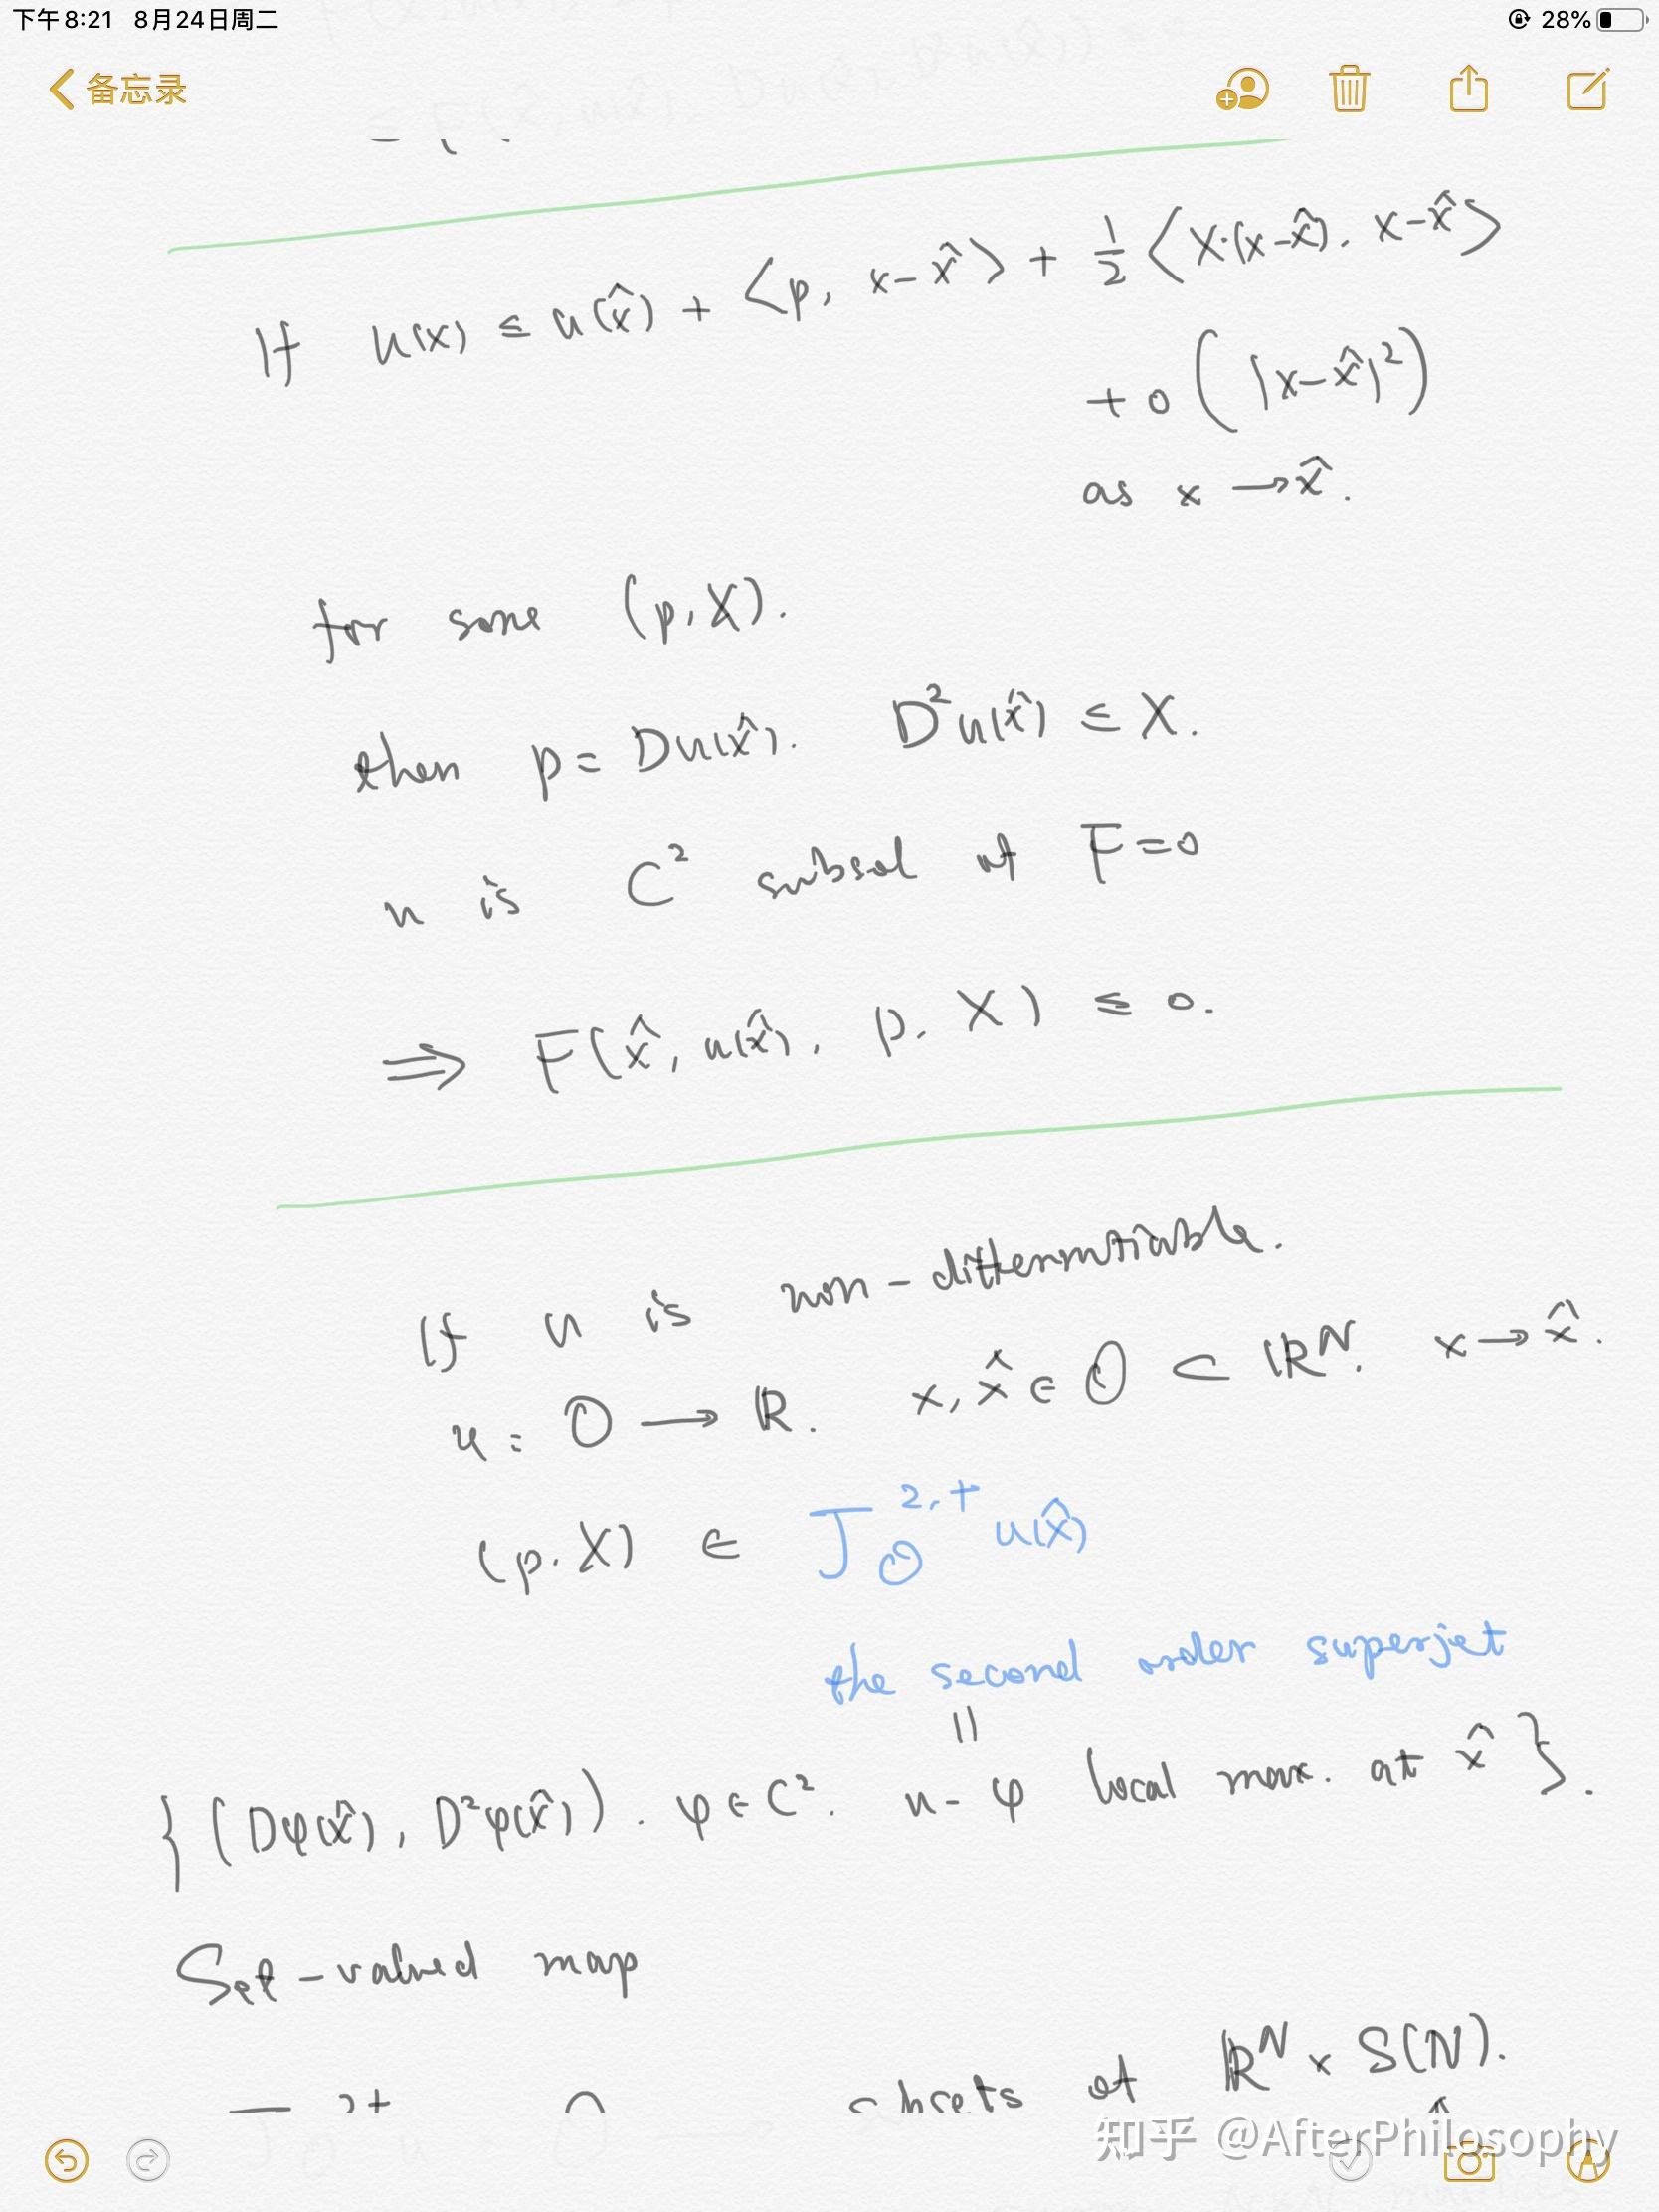 下午8:21 8月24日周二 28%
备忘录
If u(x) ≤ u(x̂) + ⟨p, x-x̂⟩ + 1/2 ⟨X·(x-x̂), x-x̂⟩
+ o(|x-x̂|²)
as x → x̂.
for some (p, X).
then p = Du(x̂). D²u(x̂) ≤ X.
u is C² subsol of F=0
⇒ F(x̂, u(x̂), p, X) ≤ 0.
If u is non-differentiable.
u: O → ℝ. x, x̂ ∈ O ⊂ ℝᴺ. x → x̂.
(p, X) ∈ J_O^{2,+} u(x̂)
the second order superjet
=
{(Dφ(x̂), D²φ(x̂)). φ ∈ C². u-φ local max. at x̂}.
Set-valued map
subsets of ℝᴺ × S(N).
知乎 @AfterPhilosophy